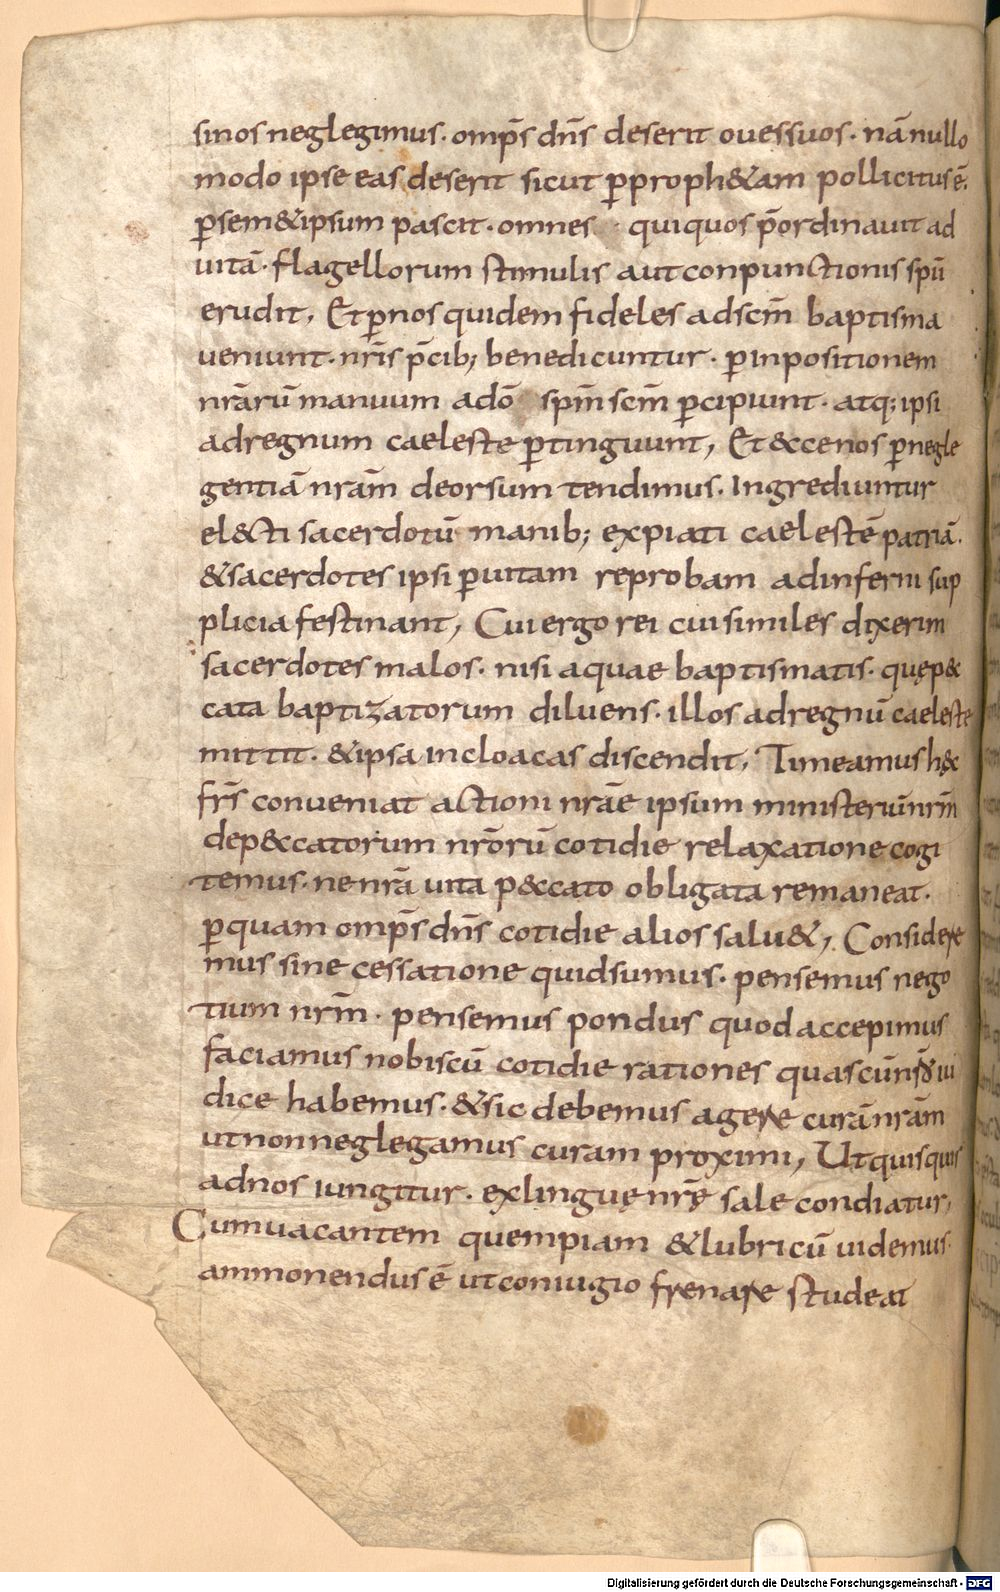 sinos neglegimus. omp̄s dn̄s deserit ouessuos. nā nullo
modo ipse eas deserit sicut ꝑproph&am pollicitus ē.
ꝑsem&ipsum pascit. omnes quiquos p̄ordinauit ad
uitā. flagellorum stimulis aut conpunctionis spū
erudit, Et ꝑnos quidem fideles adscm̄ baptisma
ueniunt. nr̄is p̄cib; benedicuntur. ꝑ inpositionem
nrārū manuum adō spm̄ scm̄ ꝑcipiunt. atq; ipsi
adregnum caeleste ꝑtinguunt, Et &ce nos ꝑnegle
gentiā nrām deorsum tendimus. Ingrediuntur
el&ti sacerdotū manib; expiati caelestē patriā.
& sacerdotes ipsi ꝑuitam reprobam adinferni sup
plicia festinant, Cui ergo rei cui similes dixerim
sacerdotes malos. nisi aquae baptismatis. quę p&
cata baptizatorum diluens. illos adregnū caeleste
mittit. & ipsa incloacas discendit, Timeamus hęc
fr̄s conueniat actioni nrāe ipsum ministeriū nr̄m
dep&catorum nrōrū cotidie relaxatione cogi
temus. ne nrā uita p&cato obligata remaneat.
ꝑquam omp̄s dn̄s cotidie alios salu&, Considere
mus sine cessatione quidsumus. pensemus nego
tium nrm̄. pensemus pondus quod accepimus
faciamus nobiscū cotidie rationes quas cū nr̄o iu
dice habemus. & sic debemus agere curā nrām
ut non neglegamus curam proximi, Ut quisquis
adnos iungitur. exlinguę nr̄ę sale condiatur,
Cum uacantem quempiam & lubricū uidemus.
ammonendus ē ut coniugio frenare studeat
Digitalisierung gefördert durch die Deutsche Forschungsgemeinschaft - DFG